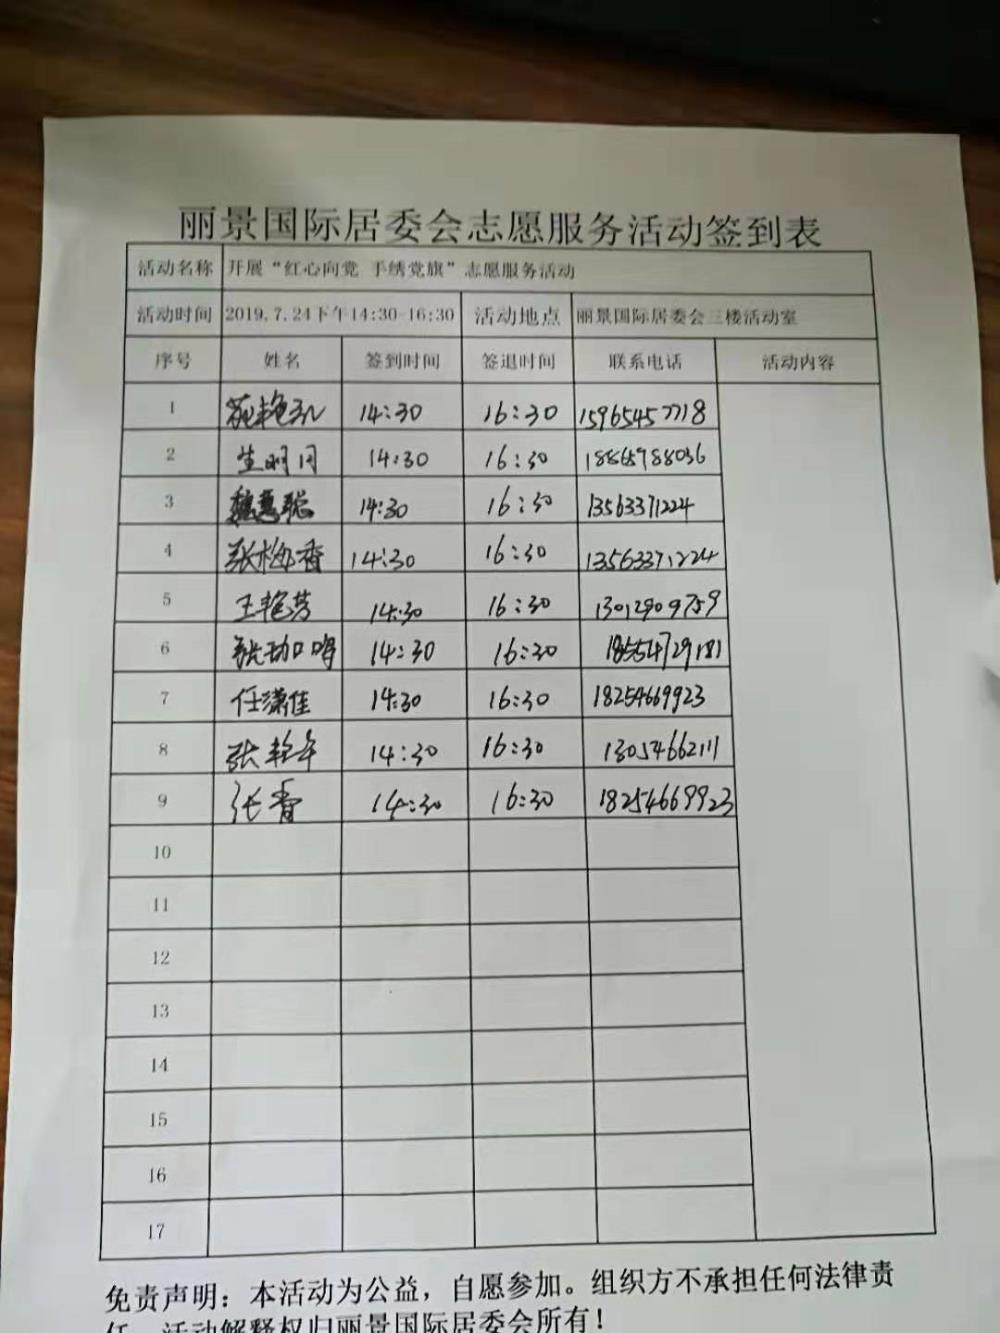 丽景国际居委会志愿服务活动签到表
活动名称 开展“红心向党 手绣党旗”志愿服务活动
活动时间 2019.7.24下午14:30-16:30 活动地点 丽景国际居委会三楼活动室
序号 姓名 签到时间 签退时间 联系电话 活动内容
1 14:30 16:30 15965457718
2 生明月 14:30 16:30 18865988036
3 魏慧聪 14:30 16:30 13563371224
4 张梅香 14:30 16:30 13563371224
5 王艳芳 14:30 16:30 13012909759
6 14:30 16:30 18554729181
7 任潇佳 14:30 16:30 18254669923
8 张 14:30 16:30 13054662111
9 张香 14:30 16:30 18254669923
10
11
12
13
14
15
16
17
免责声明：本活动为公益，自愿参加。组织方不承担任何法律责
任，活动解释权归丽景国际居委会所有！